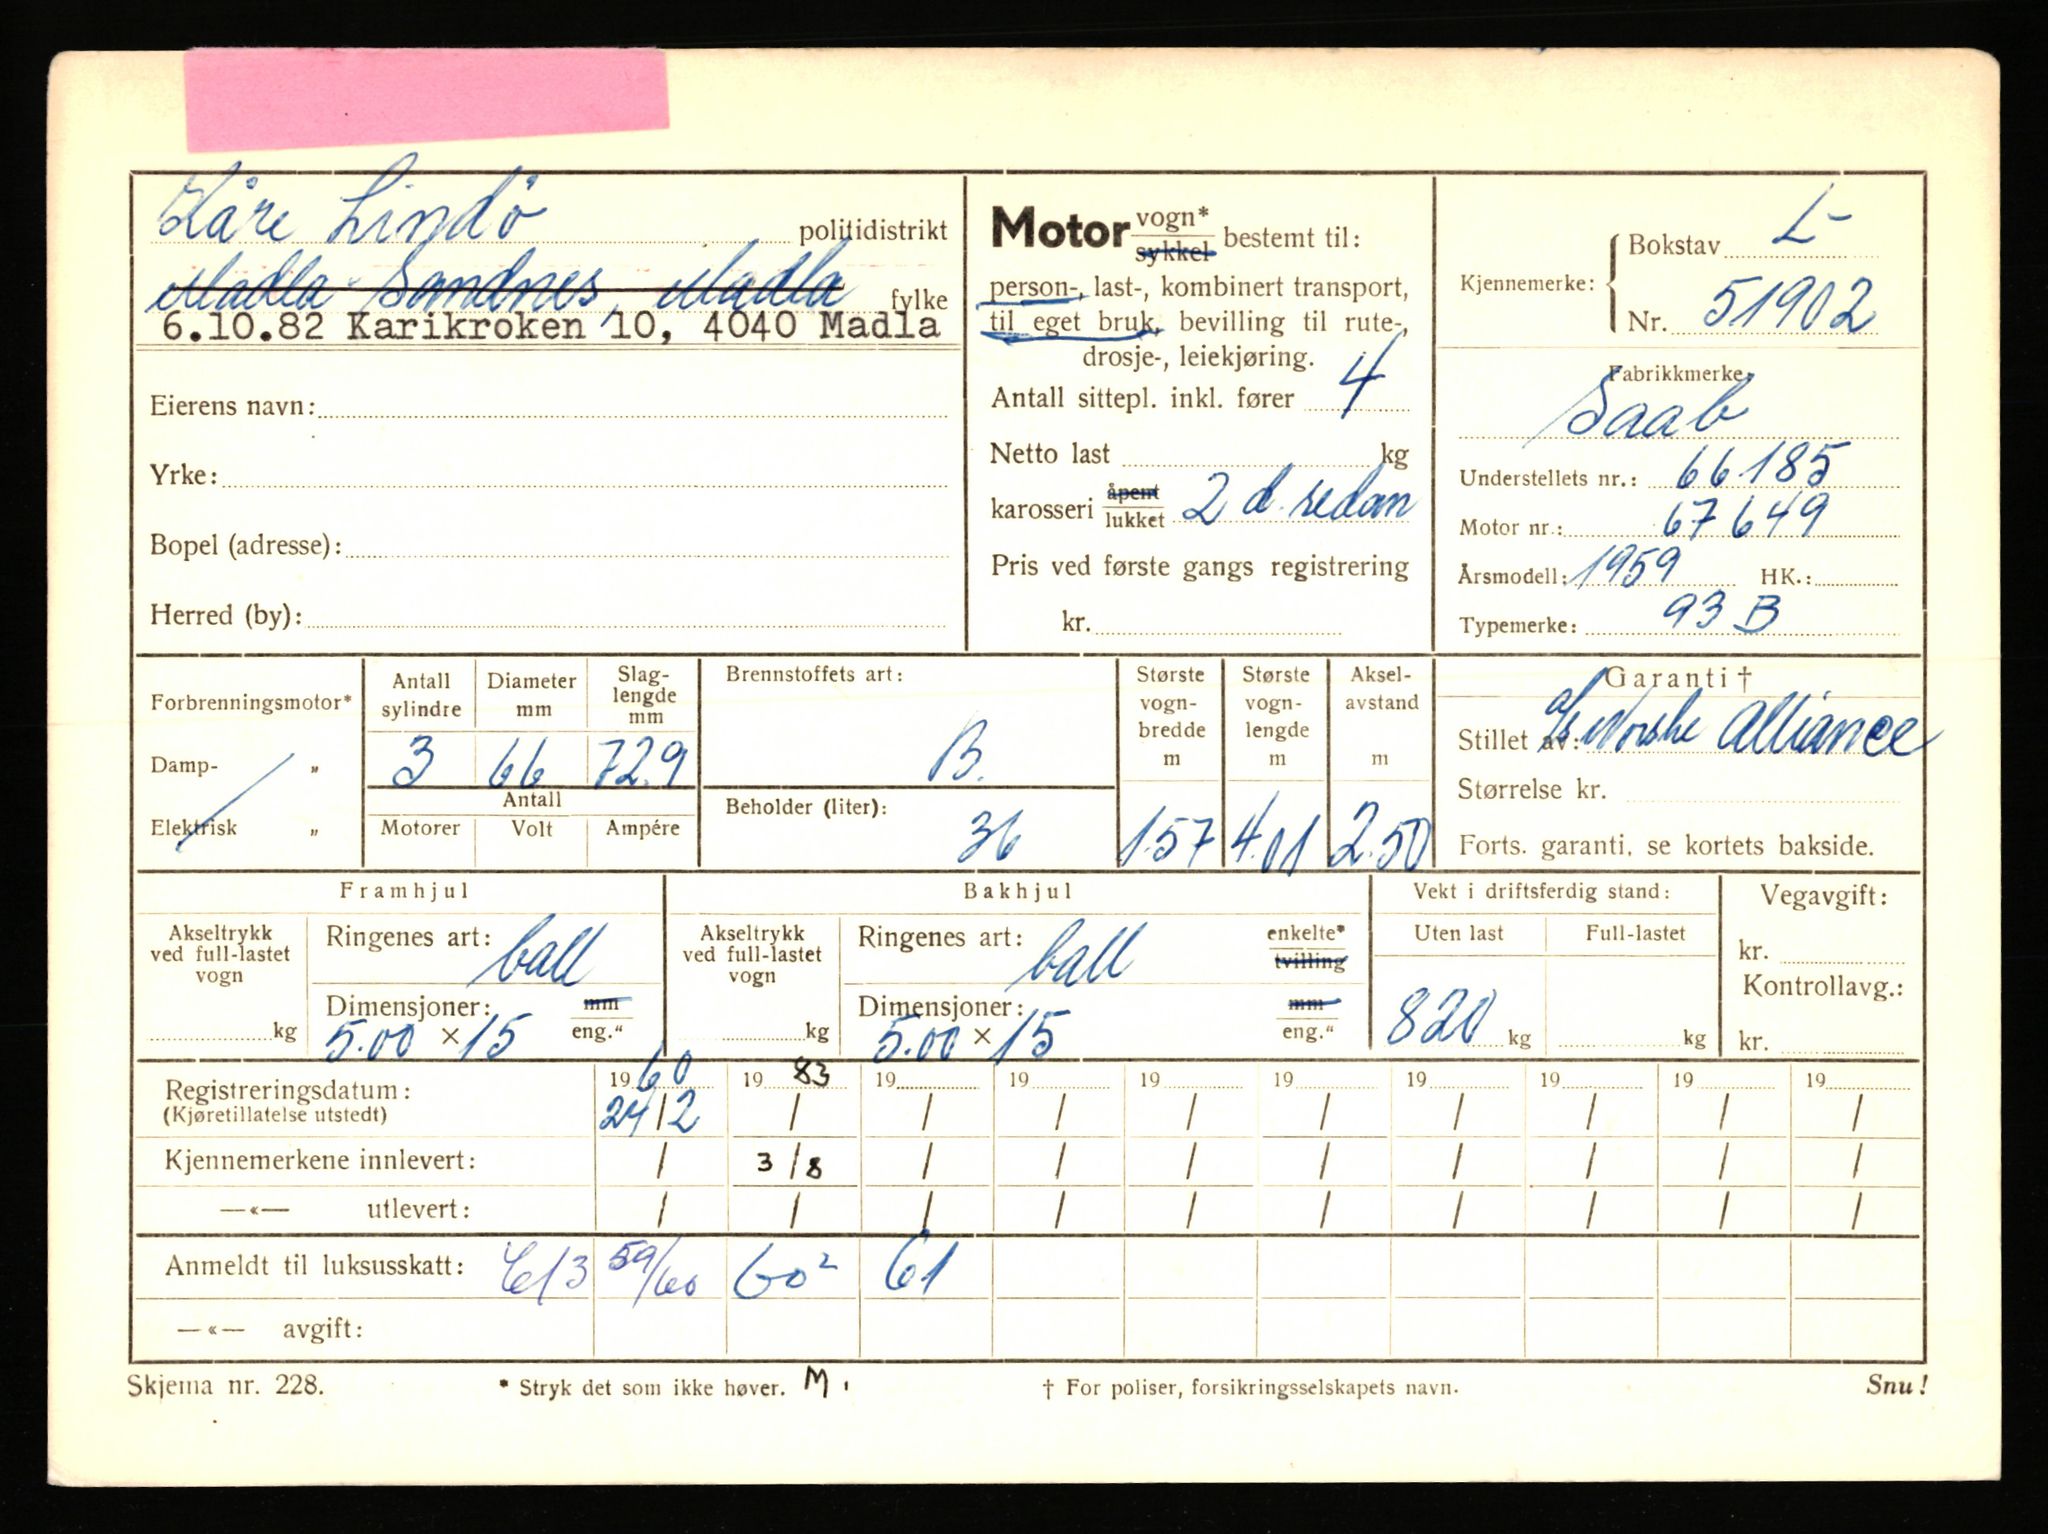 Kåre Lindö politidistrikt
Madla Sandnes, Madla fylke
6.10.82 Karikroken 10, 4040 Madla
Eierens navn:
Yrke:
Bopel (adresse):
Herred (by):
Motor vogn* sykkel bestemt til:
person-, last-, kombinert transport,
til eget bruk, bevilling til rute-,
drosje-, leiekjøring.
Antall sittepl. inkl. fører 4
Netto last kg
karosseri åpent lukket 2 d. sedan
Pris ved første gangs registrering
kr.
Kjennemerke: Bokstav L-
Nr. 51902
Fabrikkmerke:
Saab
Understellets nr.: 66185
Motor nr.: 67649
Årsmodell: 1959 HK.:
Typemerke: 93 B
Forbrenningsmotor*
Damp- „
Elektrisk „
Antall sylindre 3
Diameter mm 66
Slag-lengde mm 72.9
Antall
Motorer Volt Ampére
Brennstoffets art: B.
Beholder (liter): 36
Største vogn-bredde m 1.57
Største vogn-lengde m 4.01
Aksel-avstand m 2.50
Garanti †
Stillet av: a/s Norske Alliance
Størrelse kr.
Forts. garanti, se kortets bakside.
Framhjul
Akseltrykk ved full-lastet vogn kg
Ringenes art: ball
Dimensjoner: mm
5.00 × 15 eng."
Bakhjul
Akseltrykk ved full-lastet vogn kg
Ringenes art: ball enkelte* tvilling
Dimensjoner: mm
5.00 × 15 eng."
Vekt i driftsferdig stand:
Uten last Full-lastet
820 kg kg
Vegavgift:
kr.
Kontrollavg.:
kr.
Registreringsdatum: 1960 1983 19 19 19 19 19 19 19 19
(Kjøretillatelse utstedt) 24/2 / / / / / / / / /
Kjennemerkene innlevert: / 3/8 / / / / / / / /
—«— utlevert: / / / / / / / / / /
Anmeldt til luksusskatt: 59/60 60² 61
—«— avgift:
Skjema nr. 228. * Stryk det som ikke høver. M. † For poliser, forsikringsselskapets navn. Snu!